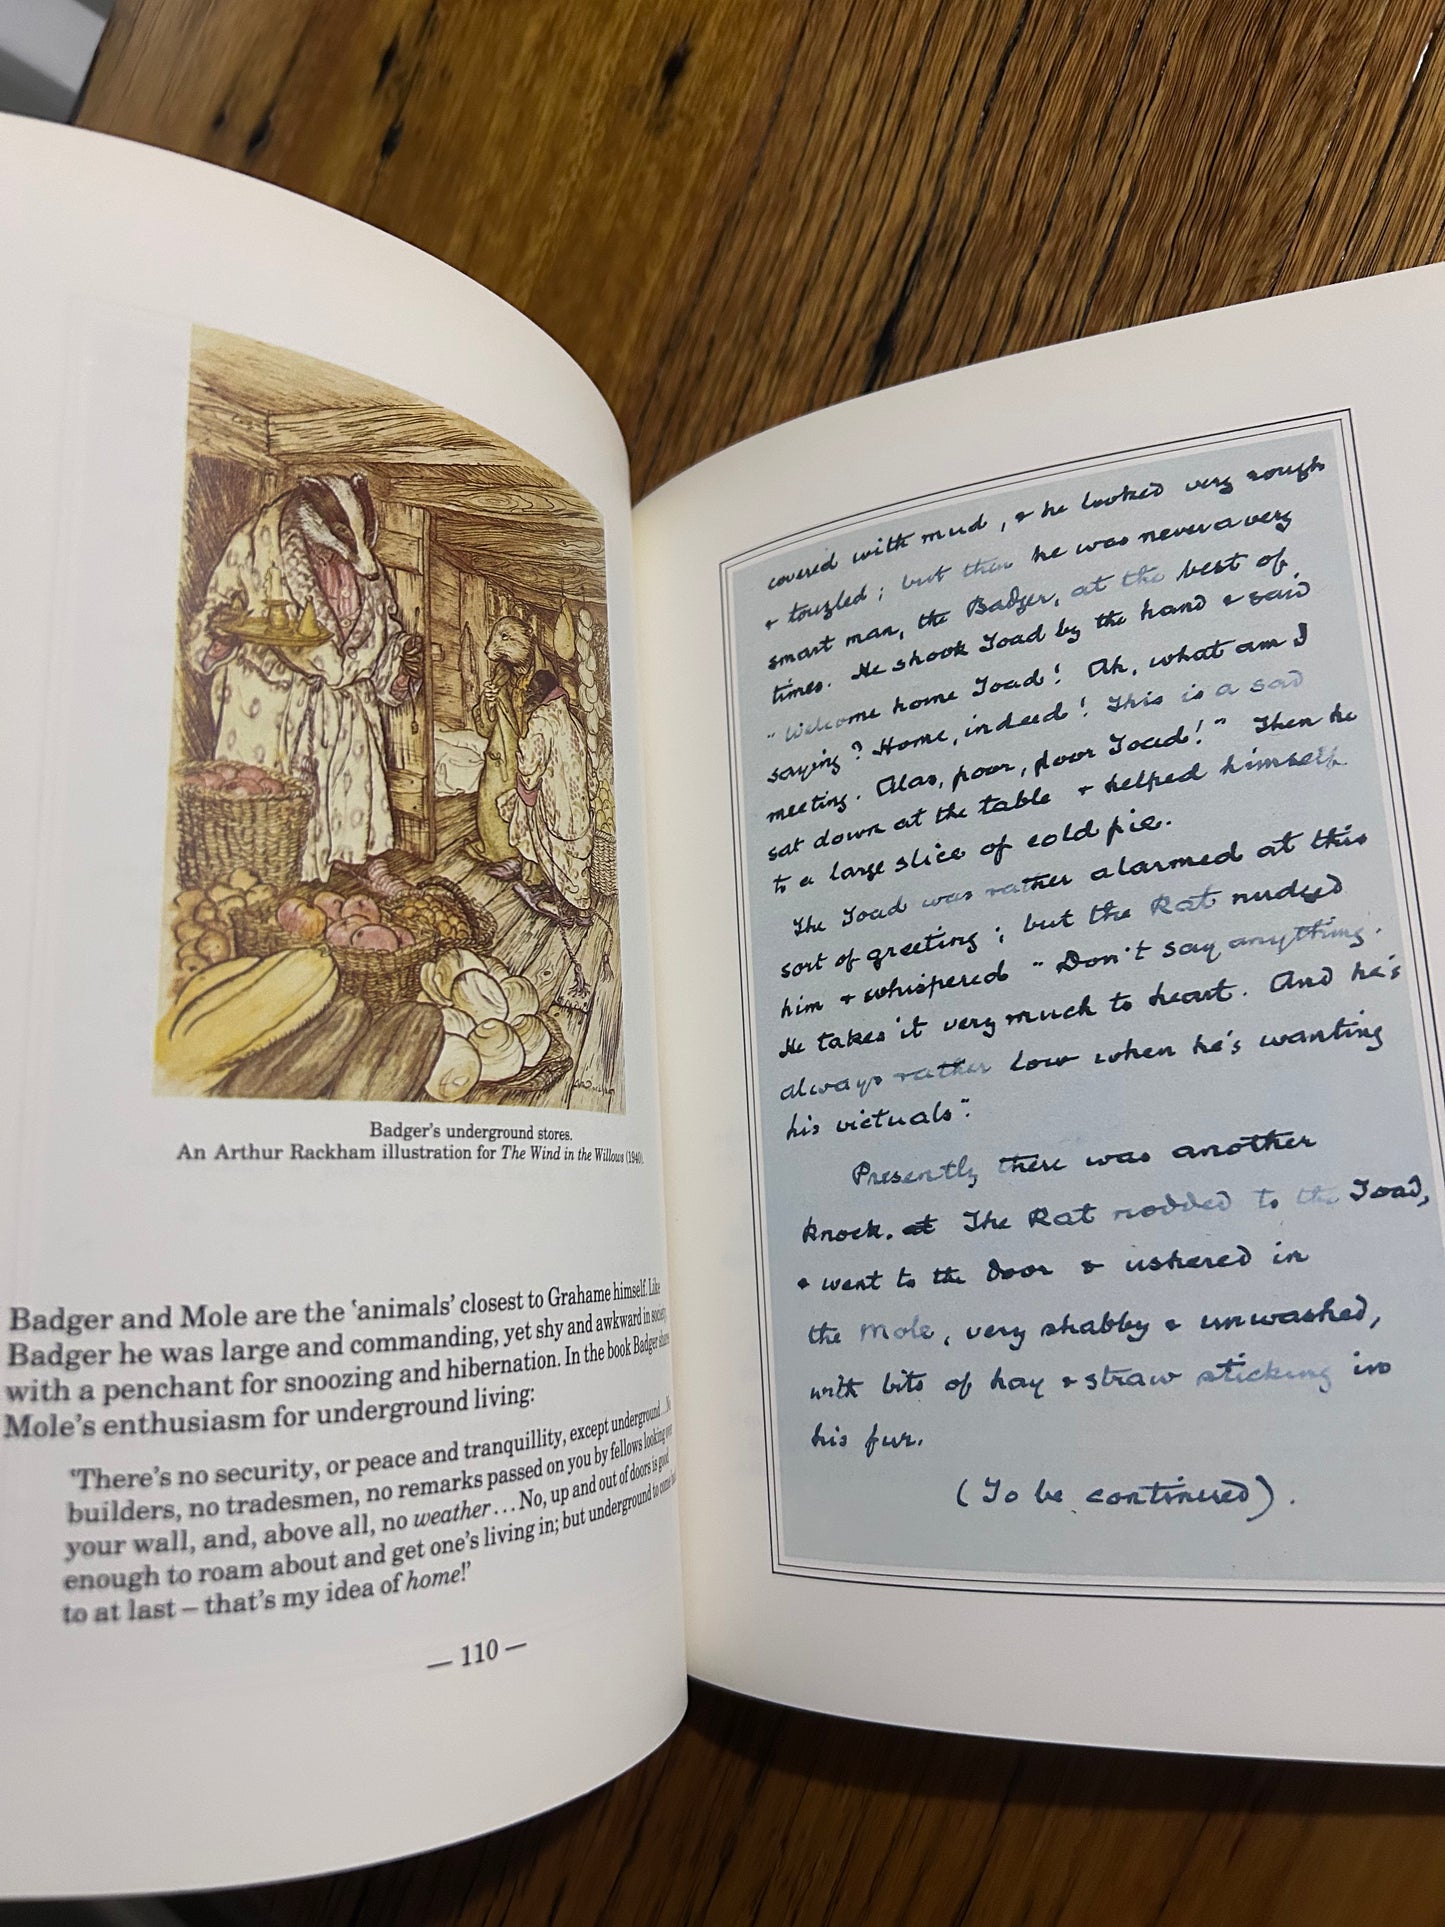 Badger's underground stores.
An Arthur Rackham illustration for The Wind in the Willows (1940).
Badger and Mole are the 'animals' closest to Grahame himself. Like
Badger he was large and commanding, yet shy and awkward in society,
with a penchant for snoozing and hibernation. In the book Badger shares
Mole's enthusiasm for underground living:
'There's no security, or peace and tranquillity, except underground ... No
builders, no tradesmen, no remarks passed on you by fellows looking over
your wall, and, above all, no weather ... No, up and out of doors is good
enough to roam about and get one's living in; but underground to come
to at last – that's my idea of home!'
— 110 —
covered with mud, & he looked very rough
& touzled; but then he was never a very
smart man, the Badger, at the best of
times. He shook Toad by the hand & said
"Welcome home Toad! Ah, what am I
saying? Home, indeed! This is a sad
meeting. Alas, poor, poor Toad!" Then he
sat down at the table & helped himself
to a large slice of cold pie.
The Toad was rather alarmed at this
sort of greeting; but the Rat nudged
him & whispered "Don't say anything.
He takes it very much to heart. And he's
always rather low when he's wanting
his victuals".
Presently there was another
knock. at The Rat nodded to the Toad,
& went to the door & ushered in
the Mole, very shabby & unwashed,
with bits of hay & straw sticking in
his fur.
(To be continued).